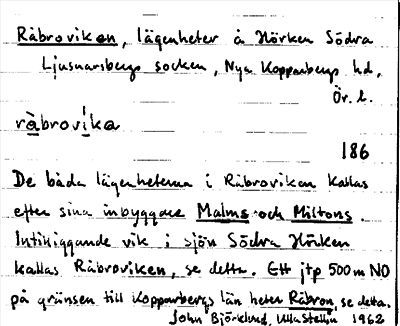 Råbroviken, lägenheter å Hörken Södra
Ljusnarsbergs socken, Nya Kopparbergs hd,
Ör. l.
råbrovika
186
De båda lägenheterna i Råbroviken kallas
efter sina inbyggare Malms och Miltons.
Intilliggande vik i sjön Södra Hörken
kallas Råbroviken, se detta. Ett jtp 500 m NO
på gränsen till Kopparbergs län heter Råbron, se detta.
John Björklund, Ulla Stellin 1962